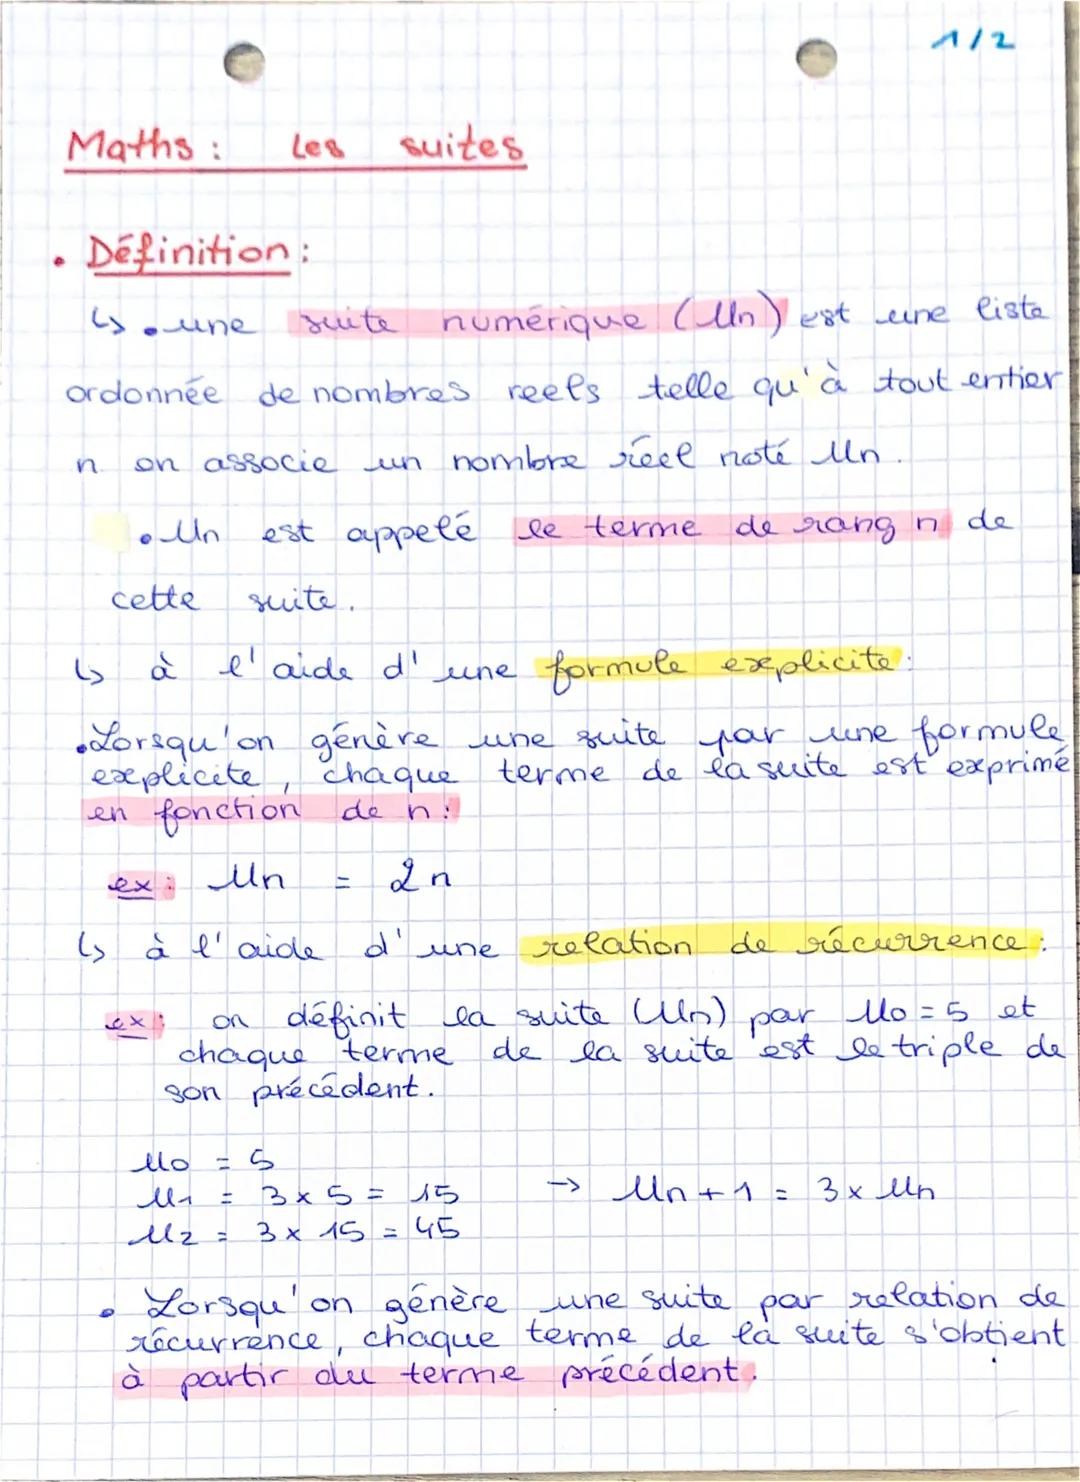 1/2
Maths : Les suites
• Définition :
↳ • une suite numérique (Un) est une liste
ordonnée de nombres reels telle qu'à tout entier
n on associe un nombre réel noté Un.
• Un est appelé le terme de rang n de
cette suite.
↳ à l'aide d'une formule explicite :
• Lorsqu'on génère une suite par une formule
explicite, chaque terme de la suite est exprimé
en fonction de n :
ex : Un = 2n
↳ à l'aide d'une relation de récurrence :
ex : on définit la suite (Un) par U0 = 5 et
chaque terme de la suite est le triple de
son précédent.
U0 = 5
U1 = 3 x 5 = 15 → Un+1 = 3 x Un
U2 = 3 x 15 = 45
• Lorsqu'on génère une suite par relation de
récurrence, chaque terme de la suite s'obtient
à partir du terme précédent.